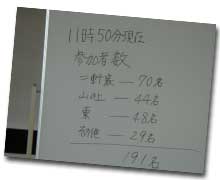 11時50分現在
参加者数
二軒家 — 70名
— 44名
東 — 48名
— 29名
191名